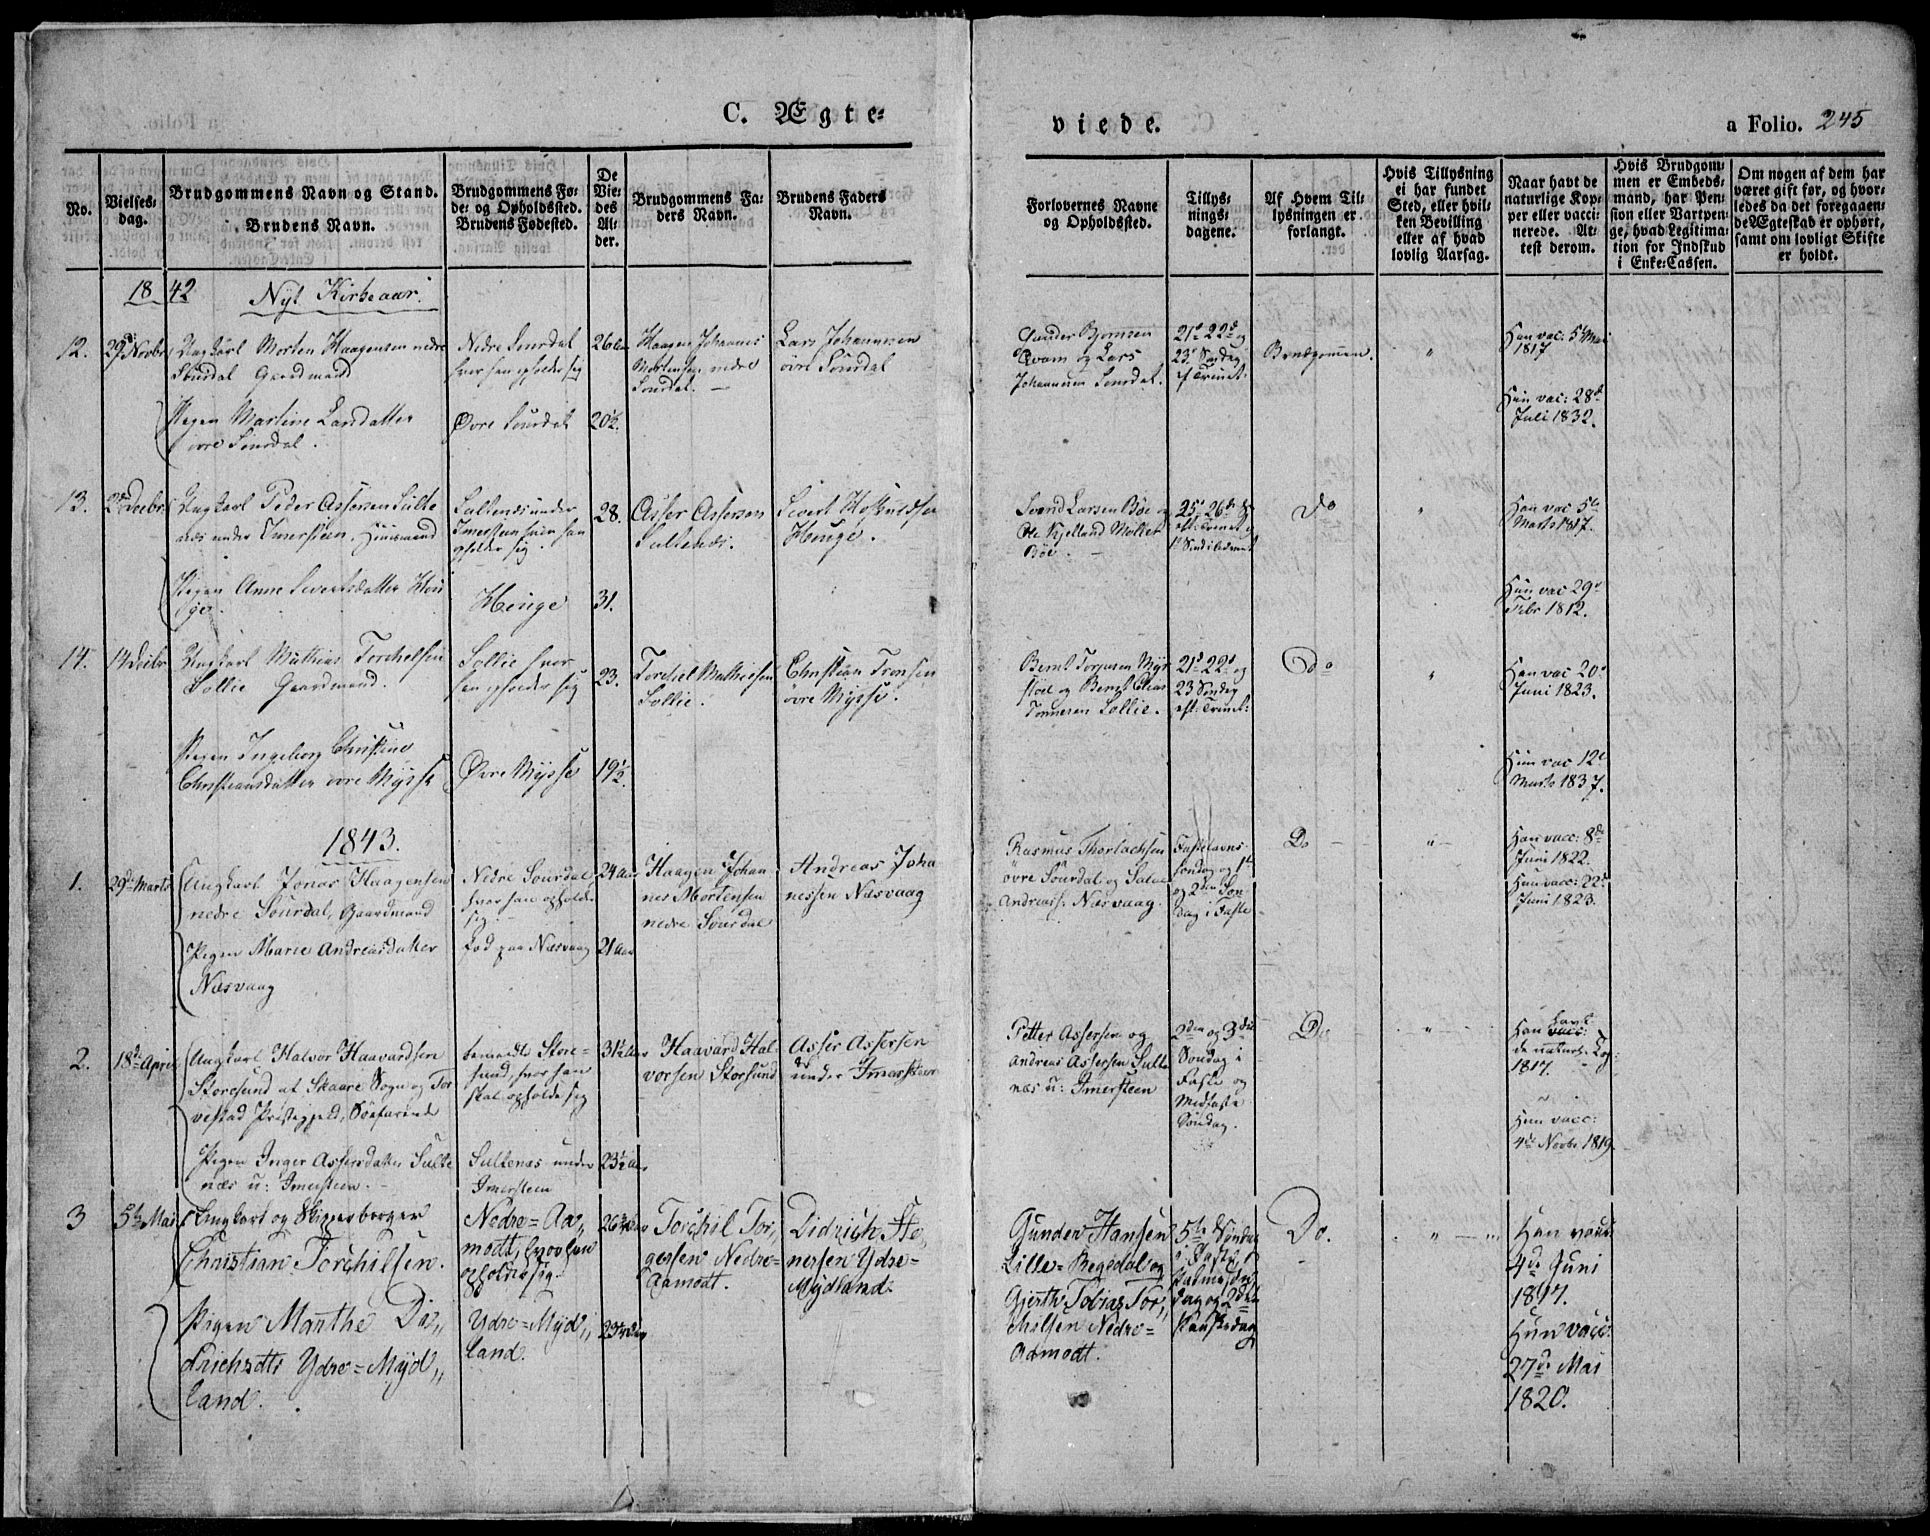 C. Ægte-
viede.
a Folio. 245
No.
Vielses-
dag.
Brudgommens Navn og Stand.
Brudens Navn.
Brudgommens Fø-
de- og Opholdssted.
Brudens Fødested.
De
Vie-
des
Al-
der.
Brudgommens Fa-
ders Navn.
Brudens Faders
Navn.
Forlovernes Navne
og Opholdssted.
Tillys-
nings-
dagene.
Af Hvem Til-
lysningen er
forlangt.
Hvis Tillysning
ei har fundet
Sted, eller hvil-
ken Bevilling
eller af hvad
lovlig Aarsag.
Naar havt de
naturlige Kop-
per eller vacci-
nerede. At-
test derom.
Hvis Brudgom-
men er Embeds-
mand, har Pen-
sion eller Vartpen-
ge, hvad Legitima-
tion for Indskud
i Enke-Cassen.
Om nogen af dem har
været gift før, og hvor-
ledes da det foregaaen-
de Ægteskab er ophørt,
samt om lovligt Skifte
er holdt.
1842 Nyt Kirkeaar.
12.
29 Novbr
Ungkarl Morten Haagensen nedre
Sourdal Gaardmand
Nedre Sourdal
hvor han opholder sig
26
Haagen Johannes
Mortensen nedre
Sourdal.
Lars Johannesen
övre Sourdal
Gunder Bjørnsen
Qvam og Lars
Johannesen Sourdal.
21d 22d og
23d Søndag
ef. Trinit.
Brudgommen.
"
Han vac. 5 Mai
1817.
Pigen Martine Larsdatter
övre Sourdal.
Øvre Sourdal
20½.
Hun vac: 28d
Juli 1832.
13.
2 Decbr
Ungkarl Peder Assersen Sulte
næs under Imersteen, Huusmand
Sultenæs under
Imersteen hvor han
opholder sig.
28.
Asser Assersen
Sultenæs.
Sivert
Heuge.
Svend Larsen Böe og
Ole Kjelland Møller
Böe.
25d 26de S
eft. Trinit. og
1 Sönd i Advent
Do
"
Han vac 5te
Marts 1817.
Pigen Anne Sivertsdatter Heu
ge.
Heuge
31.
Hun vac 29d
Febr 1812.
14.
14 Decbr
Ungkarl Mathias Torchelsen
Sollie Gaardmand.
Sollie hvor
han opholder sig
23.
Torchel Mathiesen
Sollie.
Christian Tronsen
övre Mysse.
Bernt Torjusen Myr
stöel og Bernt Elias
Tonnesen Sollie.
21d 22d og
23 Søndag
eft. Trinit.
Do
"
Han vac 20d
Juni 1823.
Pigen Ingeborg Christine
Christiansdatter övre Mysse
Øvre Mysse
19½.
Hun vac 12te
Marts 1837.
1843.
1.
29de Marts
Ungkarl Jonas Haagensen
nedre Sourdal, Gaardmand
Nedre Sourdal
hvor han opholder
sig
24 Aar
Haagen Johan
nes Mortensen
nedre Sourdal
Andreas Joha
nessen Næsvaag
Rasmus Thorlachsen
övre Sourdal og Salve
Andreass. Næsvaag.
Fastelavns
Søndag og 1ste
og 2den Søn
dag i Faste
Do
"
Han vacc: 8de
Juni 1822.
Hun vacc: 22de
Juni 1823.
Pigen Marie Andreasdatter
Næsvaag
Fød paa Næsvaag
21 Aar
2.
18de April
Ungkarl Halvor Haavardsen
Storesund af Skaare Sogn og Tor
vestad Præstegjeld, Søefarende
bemeldte Store-
sund, hvor han
skal opholde sig
31½ Aar
Haavard Hal-
vorsen Storsund
Asser Assersen
under Imersteen
Petter Assersen og
Andreas Assersen Sulte
næs u: Imersteen
2den og 3die
Søndag i
Faste og
Midfaste
Søndag.
Do
"
Han havt
de naturl. Kop
1817.
Hun vacc:
4de Novbr 1819.
Pigen Inger Assersdatter Sulte
næs u: Imersteen.
Sultenæs under
Imersteen
23½ Aar
3
5te Mai
Ungkarl og Skipperborger
Christian Torchilsen.
Nedre=Aa,,
modt, hvor han
opholder sig.
26¾ Aar
Torchil Tor,,
gersen Nedre=
Aamodt.
Didrich He,,
nessen Ydre=
Mydland.
Gunder Hansen
Lille=Regedal og
Gjerth Tobias Tor,,
chilsen Nedre=
Aamodt.
5te Søndag
i Faste,
Palmesøn,,
dag og 2den
Paaskedag
Do.
"
Han vacc.
4de Juni
1817.
Hun vacc:
27de Mai
1820.
Pigen Marthe Di,,
drichsdtr Ydre=Myd,,
land.
Ydre=Myd,,
land.
23¼ Aar